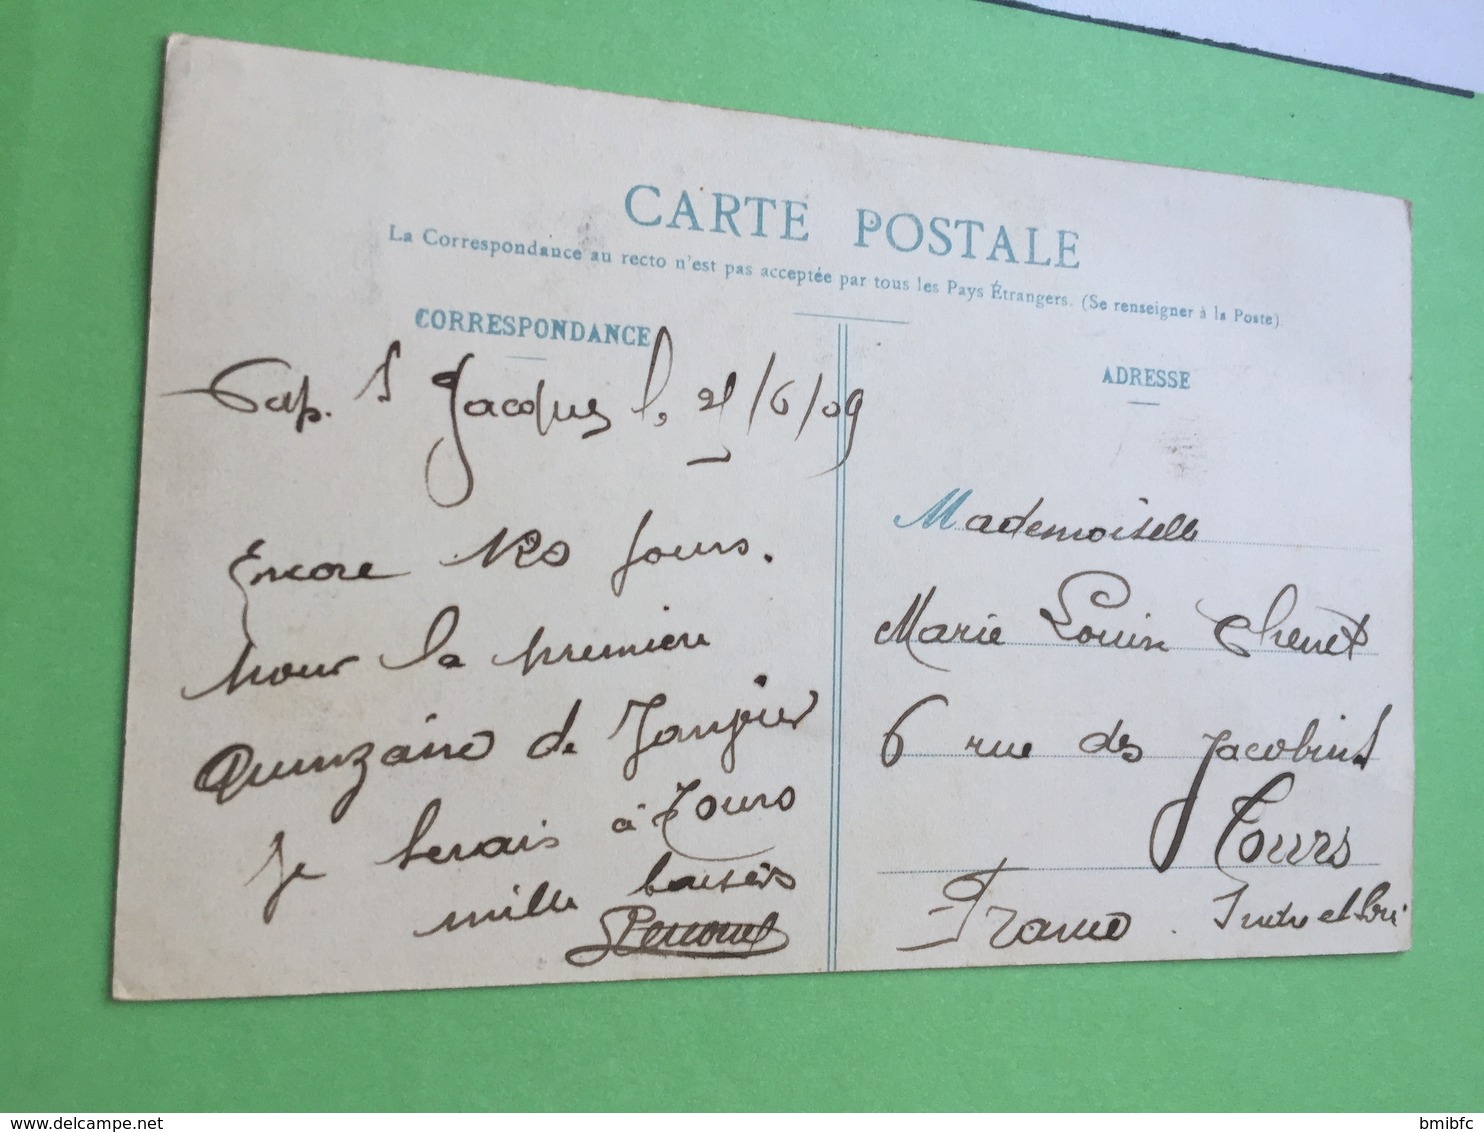 CARTE POSTALE
La Correspondance au recto n'est pas acceptée par tous les Pays Étrangers. (Se renseigner à la Poste)
CORRESPONDANCE
Cap. St Jacques le /6/09
Encore 120 jours.
pour la première
quinzaine de Janvier
je serais à Tours
mille baisers
ADRESSE
Mademoiselle
Marie Louise Chenet
6 rue des Jacobins
Tours
France. Indre et Loire
bmibfc